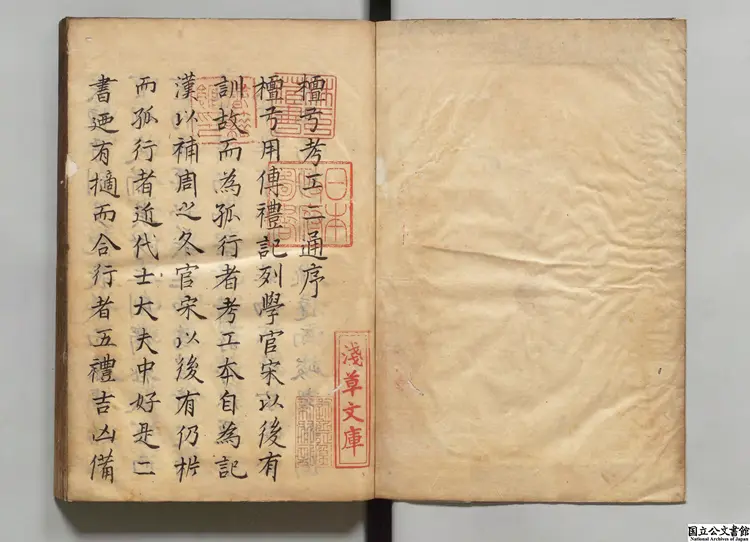 檀弓考工二通序
檀弓用傳禮記列學官宋以後有
訓故而為孤行者考工本自為記
漢以補周之冬官宋以後有仍析
而孤行者近代士大夫中好是二
書迺有摘而合行者五禮吉凶備
日本
淺草文庫
国立公文書館
National Archives of Japan